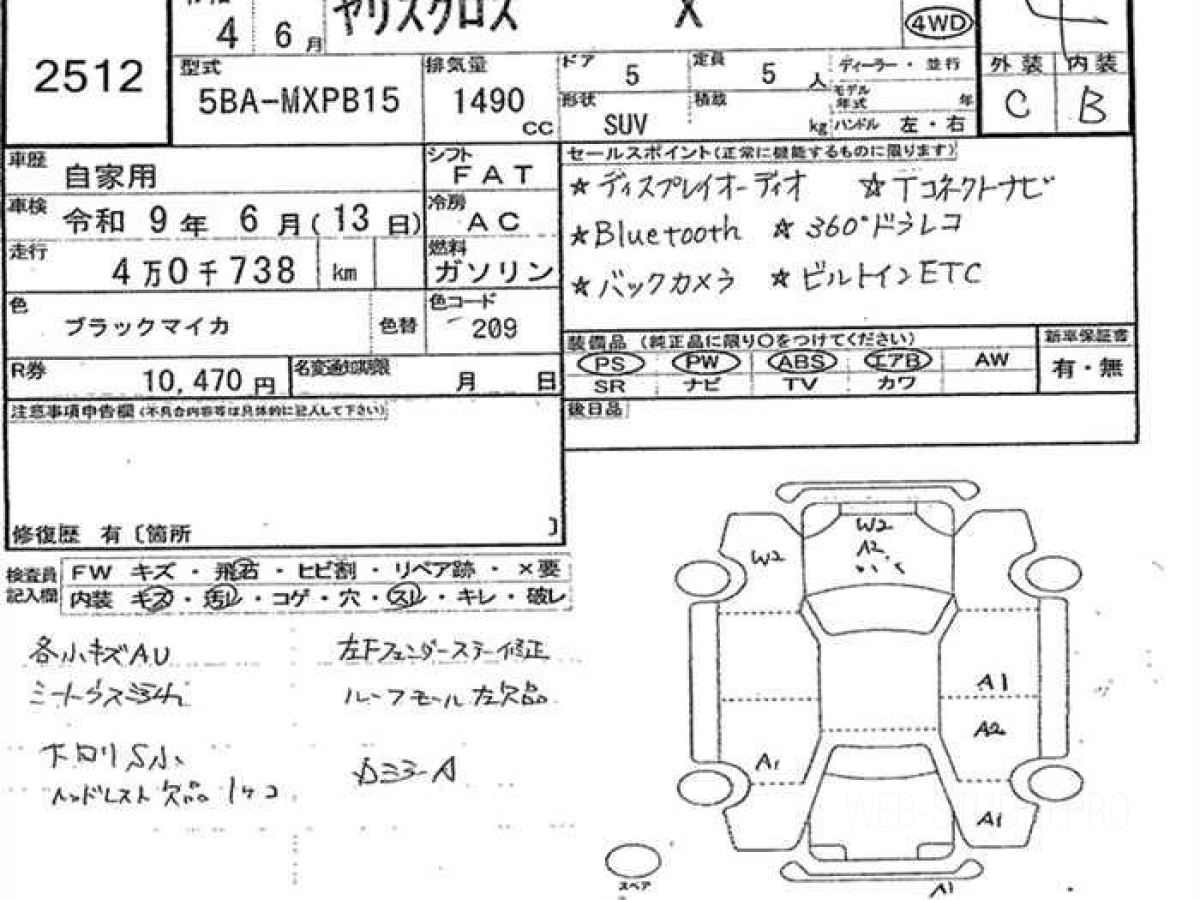 4 6月 ヤリスクロス X 4WD
2512
型式 5BA-MXPB15
排気量 1490 CC
ドア 5 定員 5 人
形状 SUV 積載 kg
ディーラー・並行
モデル年式 年
ハンドル 左・右
外装 内装
C B
車歴 自家用
シフト FAT
車検 令和 9年 6月(13日)
冷房 AC
走行 4万0千738 km
燃料 ガソリン
色 ブラックマイカ 色替
色コード 209
R券 10,470円
名変通知期限 月 日
セールスポイント(正常に機能するものに限ります)
☆ディスプレイオーディオ ☆Tコネクトナビ
☆Bluetooth ☆360°ドラレコ
☆バックカメラ ☆ビルトインETC
装備品 (純正品に限り○をつけてください)
PS PW ABS エアB AW
SR ナビ TV カワ
新車保証書
有・無
後日品
注意事項申告欄(不具合内容等は具体的に記入して下さい)
修復歴 有〔箇所 〕
検査員記入欄
FW キズ・飛石・ヒビ割・リペア跡・×要
内装 キズ・汚レ・コゲ・穴・スレ・キレ・破レ
各小キズAU
左Fフェンダーステー修正
ルーフモール左欠品
下回りS小
ヘッドレスト欠品1ケコ
W2
W2
A2
A1
A2
A1
A1
A1
スペア
WEB-STUDIO.PRO